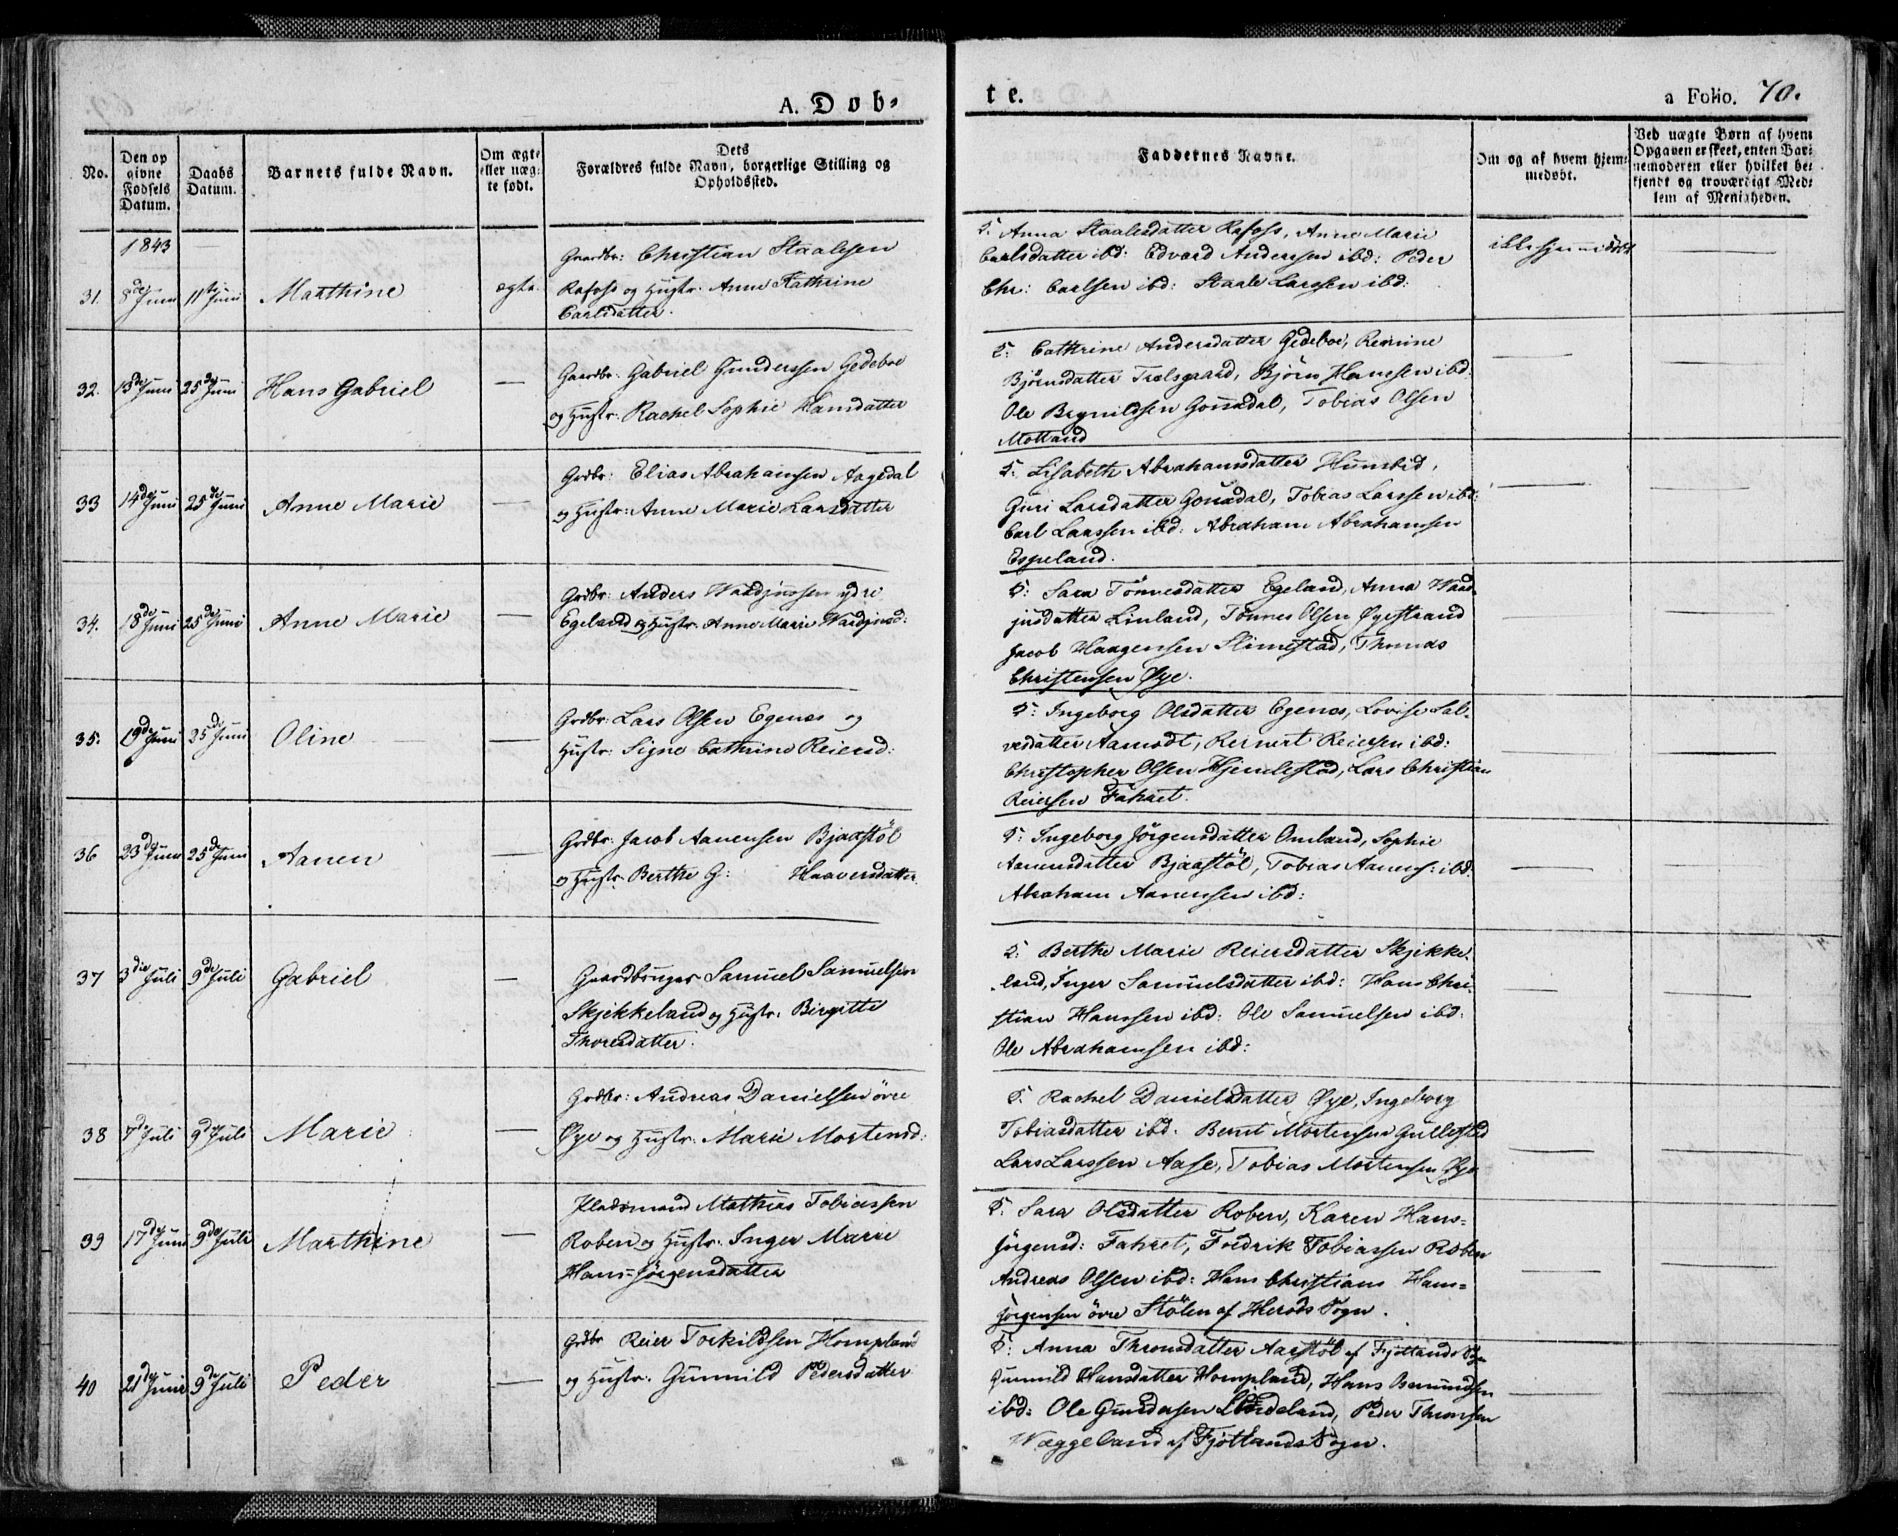 A. Døb-
te.
a Folio. 70.
No.
Den op
givne
Fødsels
Datum.
Daabs
Datum.
Barnets fulde Navn.
Om ægte
eller uæg-
te født.
Dets
Forældres fulde Navn, borgerlige Stilling og
Opholdssted.
Faddernes Navne.
Om og af hvem hjem-
medøbt.
Ved uægte Børn af hvem
Opgaven er skeet, enten Bar-
nemoderen eller hvilket be-
kjendt og troværdigt Med-
lem af Menigheden.
1843
31. 8de Juni 11te Juni Marthine ægte.
Gaardbr: Christian Staalesen
Rafoss og Hustr. Anne Kathrine
Carlsdatter.
F: Anna Staalesdatter Rafoss, Anne Marie
Carlsdatter ibd: Edvard Andersen ibd: Peder
Chr: Carlsen ibd: Staale Larssen ibd:
ikke hjemmedøbt
32. 13de Juni 25de Juni Hans Gabriel —
Gaardbr: Gabriel Gunderssen Gedeboe
og Hustr. Rachel Sophie Hansdatter
F: Cathrine Andersdatter Gedeboe,
Bjørnsdatter Trælsgaard, Bjørn Hansen ibd:
Ole Gousdal, Tobias Olsen
Motland
33 14de Juni 25de Juni Anne Marie —
Grdbr: Elias Abrahamsen Aagedal
og Hustr: Anne Marie Larsdatter
F: Lisabeth Abrahamsdatter
Guri Larsdatter Gousdal, Tobias Larssen ibd:
Carl Larssen ibd: Abraham Abrahamsen
Espeland.
34. 18de Juni 25de Juni Anne Marie —
Grdbr: Anders ydre
Egeland og Hustr. Anne Marie
F: Sara Tönnesdatter Egeland, Anna Ward-
jusdatter Linland, Tönnes Olsen Øyestrand
Jacob Haagensen Slimestad, Thomas
Christensen Øye.
35. 19de Juni 25de Juni Oline —
Grdbr: Lars Olsen Egenes og
Hustr: Signe Cathrine Reiersd:
F: Ingeborg Olsdatter Egenes, Lovise Sal-
vesdatter Aamodt, Reinert Reiersen ibd:
Christopher Olsen Hjemlestad, Lars Christian
Reiersen Fahret.
36 23de Juni 25de Juni Aanen —
Grdbr: Jacob Aanensen Bjaastöl
og Hustr. Berthe G: Haaversdatter.
F: Ingeborg Jörgensdatter Omland, Sophie
Aanensdatter Bjaastöl, Tobias Aanens: ibd:
Abraham Aanensen ibd:
37 3die Juli 9de Juli Gabriel —
Gaardbruger Samuel Samuelsen
Skjekkeland og Hustr. Birgitte
Thorsdatter.
F: Berthe Marie Reiersdatter Skjekke-
land, Inger Samuelsdatter ibd: Hans Chri-
stian Hanssen ibd: Ole Samuelsen ibd:
Ole Abrahamsen ibd:
38 7de Juli 9de Juli Marie —
Grdbr: Andreas Danielsen övre
Øye og Hustr. Marie Mortensd:
F: Rachel Danielsdatter Øye, Ingeborg
Tobiasdatter ibd. Bernt Mortensen Gullestad
Lars Larssen Aase, Tobias Mortensen Øye
39 17de Juni 9de Juli Marthine —
Pladsmand Mathias Tobiassen
Roben og Hustr. Inger Marie
Hans-Jörgensdatter
F: Sara Olsdatter Roben, Karen Hans-
Jörgensd: Fahret, Fredrik Tobiassen Roben
Andreas Olsen ibd: Hans Christians Hans-
Jörgensen övre Stölen af Herads Sogn.
40 21de Juni 9de Juli Peder —
Grdbr Reier Torkildsen Hompland
og Hustr. Gunnild Pedersdatter
F: Anna Thronsdatter Aastöl af Fjotlands Sogn
Gunnild Hansdatter Hompland, Hans
ibd: Ole Gundersen Lindeland, Peder Thronsen
Wæggeland af Fjotlands Sogn.